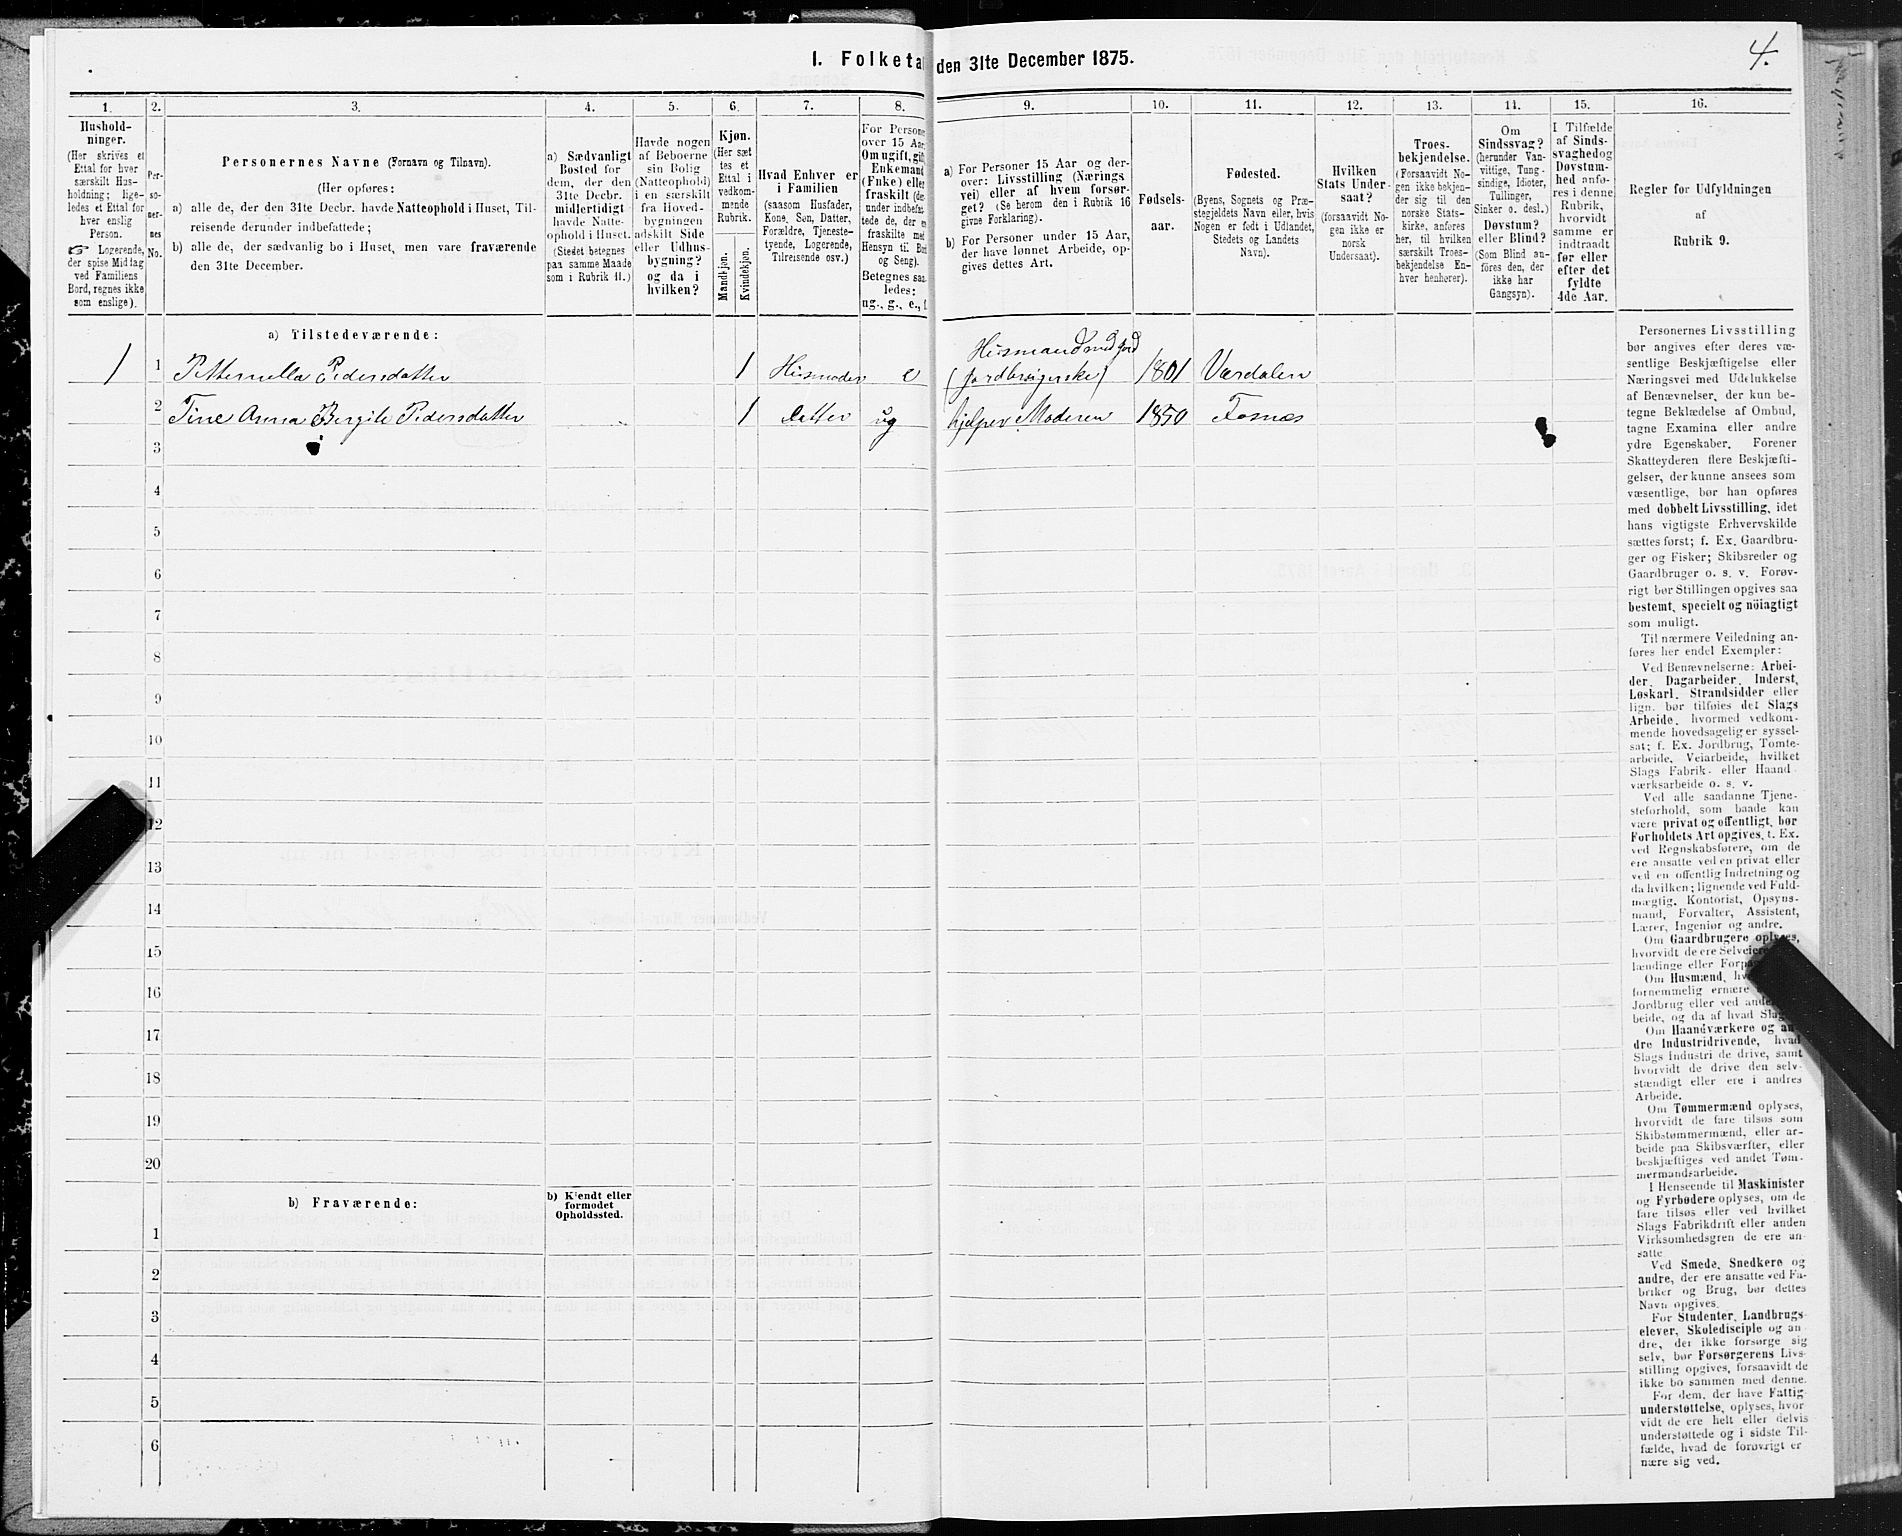 4.
I. Folketa den 31te December 1875.
1.
2.
3.
4.
5.
6.
7.
8.
9.
10.
11.
12.
13.
14.
15.
16.
Hushold-
ninger.
(Her skrives et
Ettal for hver
særskilt Hus-
holdning; lige-
ledes et Ettal for
hver enslig
Person.
Logerende,
der spise Middag
ved Familiens
Bord, regnes ikke
som enslige).
Per-
so-
ner-
nes
No.
Personernes Navne (Fornavn og Tilnavn).
(Her opføres:
a) alle de, der den 31te Decbr. havde Natteophold i Huset, Til-
reisende derunder indbefattede;
b) alle de, der sædvanlig bo i Huset, men vare fraværende
den 31te December.
a) Sædvanligt
Bosted for
dem, der den
31te Decbr.
midlertidigt
havde Natte-
ophold i Huset.
(Stedet betegnes
paa samme Maade
som i Rubrik 11.)
Havde nogen
af Beboerne
sin Bolig
(Natteophold)
i en særskilt
fra Hoved-
bygningen
adskilt Side
eller Udhus-
bygning?
og da i
hvilken?
Kjøn.
(Her sæt
tes et
Ettal i
vedkom-
mende
Rubrik.
Mandkjøn.
Kvindekjøn.
Hvad Enhver er
i Familien
(saasom Husfader,
Kone, Søn, Datter,
Forældre, Tjeneste-
tyende, Logerende,
Tilreisende osv.)
For Persone
over 15 Aar
Om ugift, gift
Enkemand
(Enke) eller
fraskilt (de
under indbefat
tede de, der e
fraskilte med
Hensyn til Bo
og Seng).
Betegnes saa
ledes:
ug., g., e., f
a) For Personer 15 Aar og der-
over: Livsstilling (Nærings
vei) eller af hvem forsør-
get? (Se herom den i Rubrik 16
givne Forklaring).
b) For Personer under 15 Aar,
der have lønnet Arbeide, op-
gives dettes Art.
Fødsels-
aar.
Fødested.
(Byens, Sognets og Præ-
stegjeldets Navn eller, hvis
Nogen er født i Udlandet,
Stedets og Landets
Navn).
Hvilken
Stats Under-
saat?
(forsaavidt No-
gen ikke er
norsk
Undersaat).
Troes-
bekjendelse.
(Forsaavidt No-
gen ikke bekjen-
der sig til den
norske Stats-
kirke, anføres
her, til hvilken
særskilt Troes-
bekjendelse En-
hver henhører).
Om
Sindssvag?
(herunder Van-
vittige, Tung-
sindige, Idioter,
Tullinger,
Sinker o. desl.)
Døvstum?
eller Blind?
(Som Blind an-
føres den, der
ikke har
Gangsyn).
I Tilfælde
af Sinds-
svaghed og
Døvstum-
hed anfø-
res i denne
Rubrik,
hvorvidt
samme er
indtraadt
før eller
efter det
fyldte
4de Aar.
Regler for Udfyldningen
af
Rubrik 9.
a) Tilstedeværende:
1 1 Petternella Pedersdatter 1 Husmoder e Husmand med Jord (Jordbrugerske) 1801 Værdalen
2 Tine Anna Bergite Pedersdatter 1 Datter ug hjelper Moderen 1850 Fosnæs
3
4
5
6
7
8
9
10
11
12
13
14
15
16
17
18
19
20
b) Fraværende:
b) Kjendt eller
formodet
Opholdssted.
1
2
3
4
5
6
Personernes Livsstilling
bør angives efter deres væ-
sentlige Beskjæftigelse eller
Næringsvei med Udelukkelse
af Benævnelser, der kun be-
tegne Beklædelse af Ombud,
tagne Examina eller andre
ydre Egenskaber. Forener
Skatteyderen flere Beskjæfti-
gelser, der kunne ansees som
væsentlige, bør han opføres
med dobbelt Livsstilling, idet
hans vigtigste Erhvervskilde
sættes først; f. Ex. Gaardbru-
ger og Fisker; Skibsreder og
Gaardbruger o. s. v. Forøv-
rigt bør Stillingen opgives saa
bestemt, specielt og nöiagtigt
som muligt.
Til nærmere Veiledning an-
føres her endel Exempler:
Ved Benævnelserne: Arbei-
der, Dagarbeider, Inderst,
Løskarl, Strandsidder eller
lign. bør tilføies det Slags
Arbeide, hvormed vedkom-
mende hovedsagelig er syssel-
sat; f. Ex. Jordbrug, Tomte-
arbeide, Veiarbeide, hvilket
Slags Fabrik- eller Haand
værksarbeide o. s. v.
Ved alle saadanne Tjene-
steforhold, som baade kan
være privat og offentligt, bør
Forholdets Art opgives, t. Ex.
ved Regnskabsførere, om de
ere ansatte ved en privat eller
ved en offentlig Indretning og
da hvilken; lignende ved Fuld-
mægtig, Kontorist, Opsyns-
mand, Forvalter, Assistent,
Lærer, Ingeniør og andre.
Om Gaardbrugere oplyses,
hvorvidt de ere Selveiere
lændinge eller Forpa
Om Husmænd, hv
fornemmelig ernære
Jordbrug eller ved ande
beide, og da af hvad Slags
Om Haandværkere og an
dre Industridrivende, hvad
Slags Industri de drive, samt
hvorvidt de drive den selv-
stændigt eller ere i andres
Arbeide.
Om Tømmermænd oplyses,
hvorvidt de fare tilsøs som
Skibstømmermænd, eller ar-
beide paa Skibsværfter, eller
beskjæftiges ved andet Tøm-
mermandsarbeide.
I Henseende til Maskinister
og Fyrbødere oplyses, om de
fare tilsøs eller ved hvilket
Slags Fabrikdrift eller anden
Virksomhedsgren de ere an-
satte
Ved Smede, Snedkere og
andre, der ere ansatte ved Fa-
briker og Brug, bør dettes
Navn opgives.
For Studenter, Landbrugs-
elever, Skoledisciple og an-
dre, der ikke forsørge sig
selv, bør Forsørgerens Livs-
stilling opgives, forsaavidt de
ikke bo sammen med denne.
For dem, der have Fattig-
understøttelse, oplyses, hvor-
vidt de ere helt eller delvis
understøttede og i sidste Til-
fælde, hvad de forøvrigt er
nære sig ved.